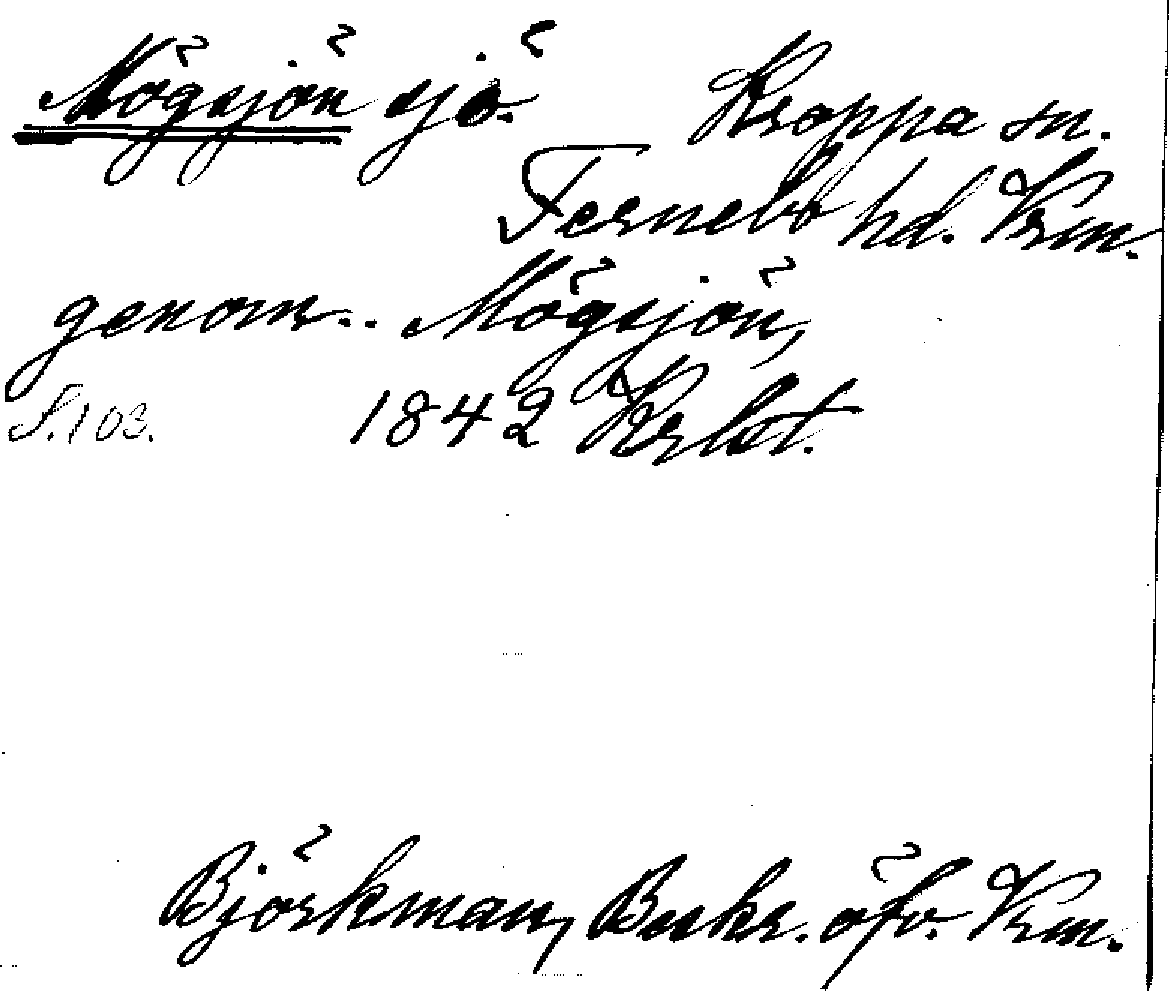 Mögsjön sjö. Kroppa sn.
Fernebo hd. Vrm.
genom.. Mögsjön,
S. 103. 1842 Krlbt.
Björkman, Beskr. öfv. Vrm.